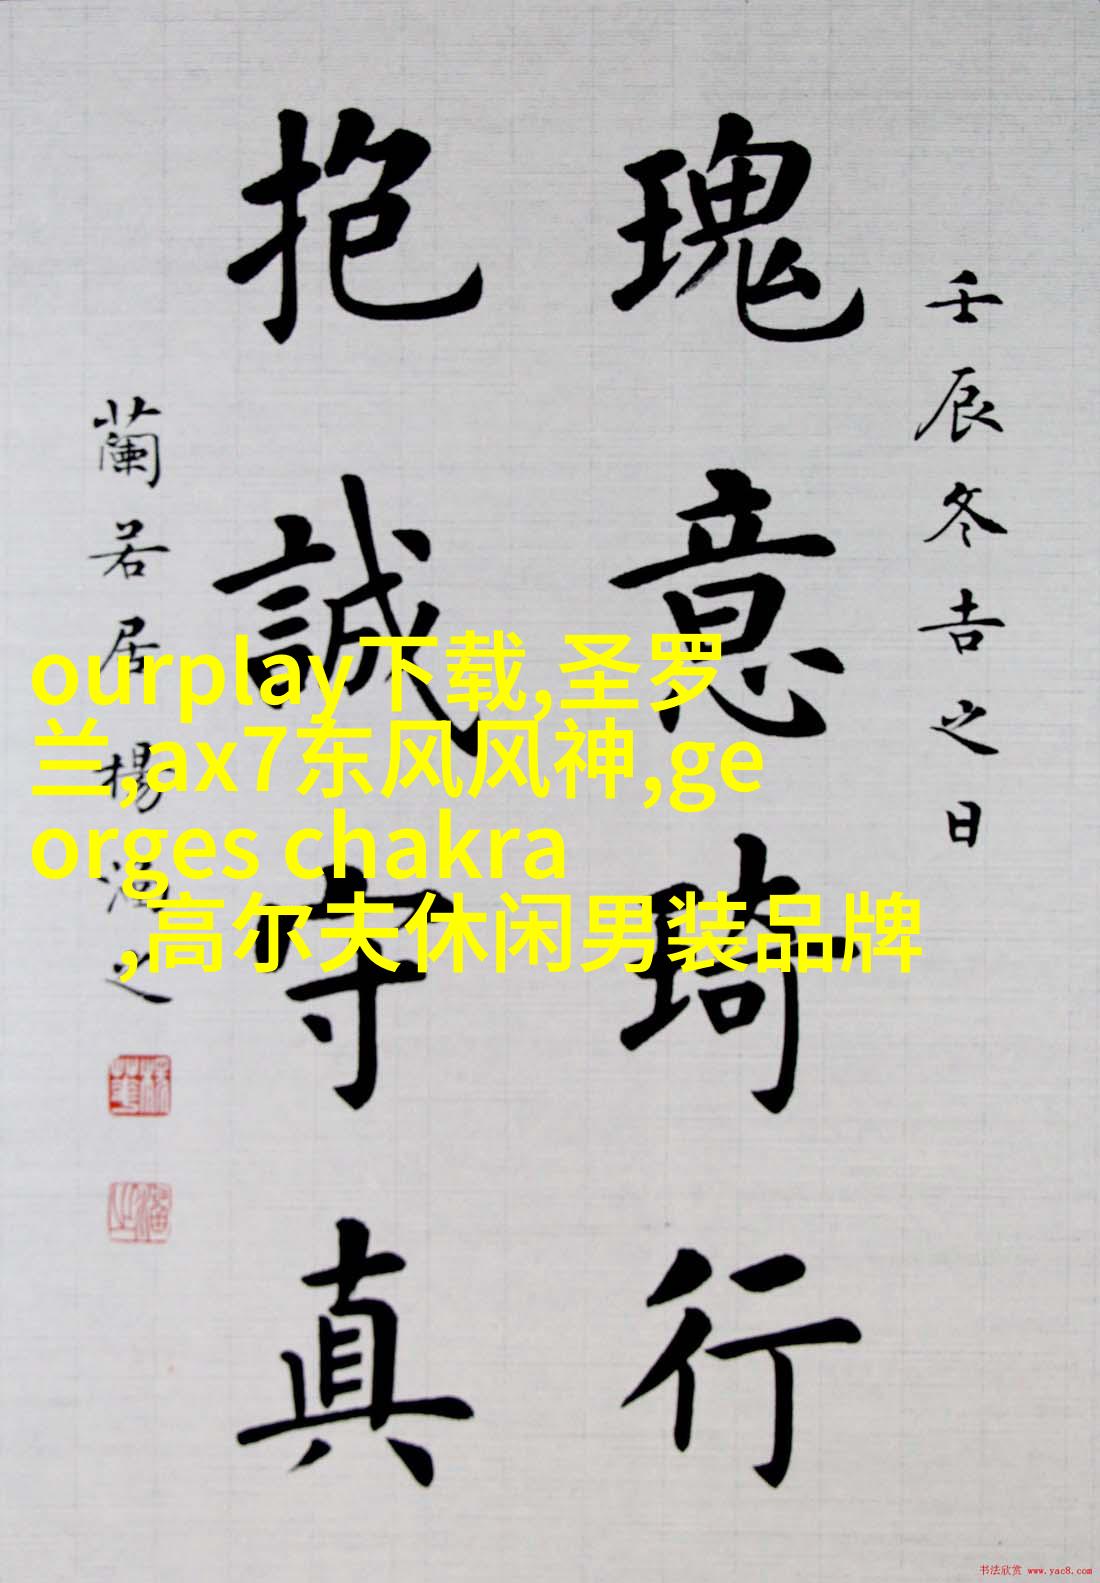 壬辰冬吉之日
瑰意琦行
抱誠守真
蘭若居楊
之
ourplay下载,圣罗
兰,ax7东风风神,ge
orges chakra
,高尔夫休闲男装品牌
书法欣赏 www.yac8.com